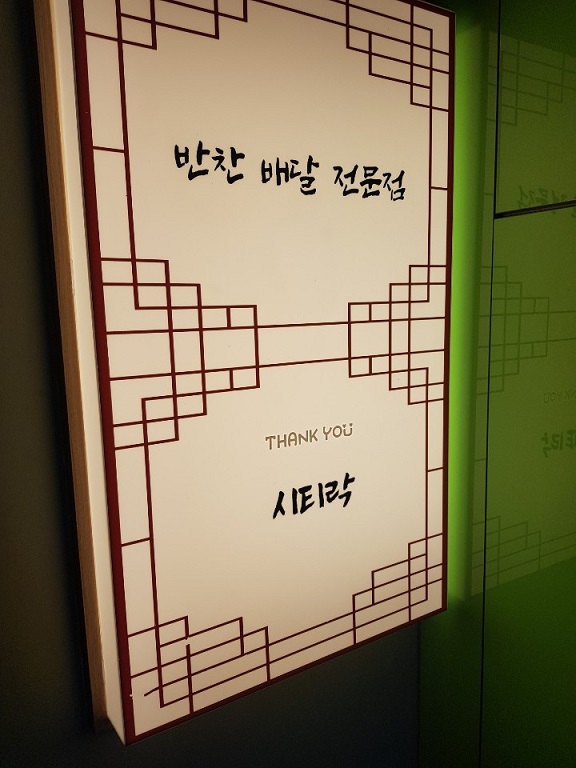 반찬 배달 전문점
THANK YOU
시티락